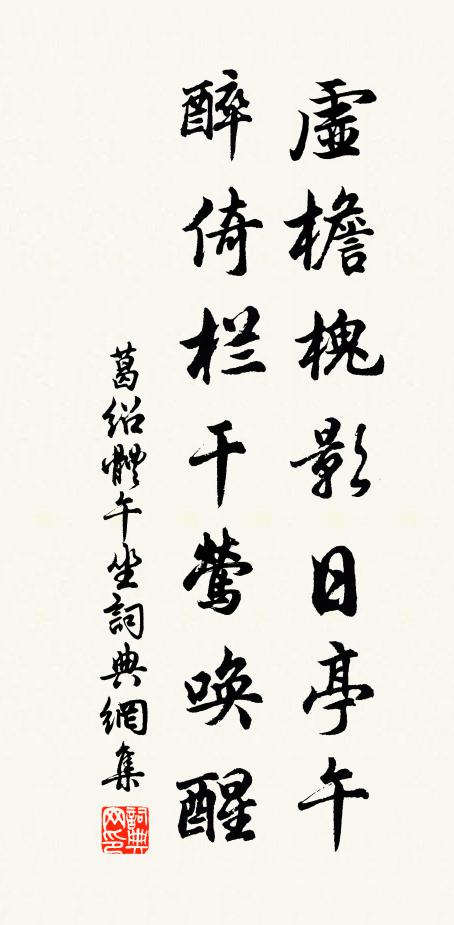 虛檐槐影日亭午
醉倚栏干莺唤醒
葛绍體午坐詞典網集
詞典网印